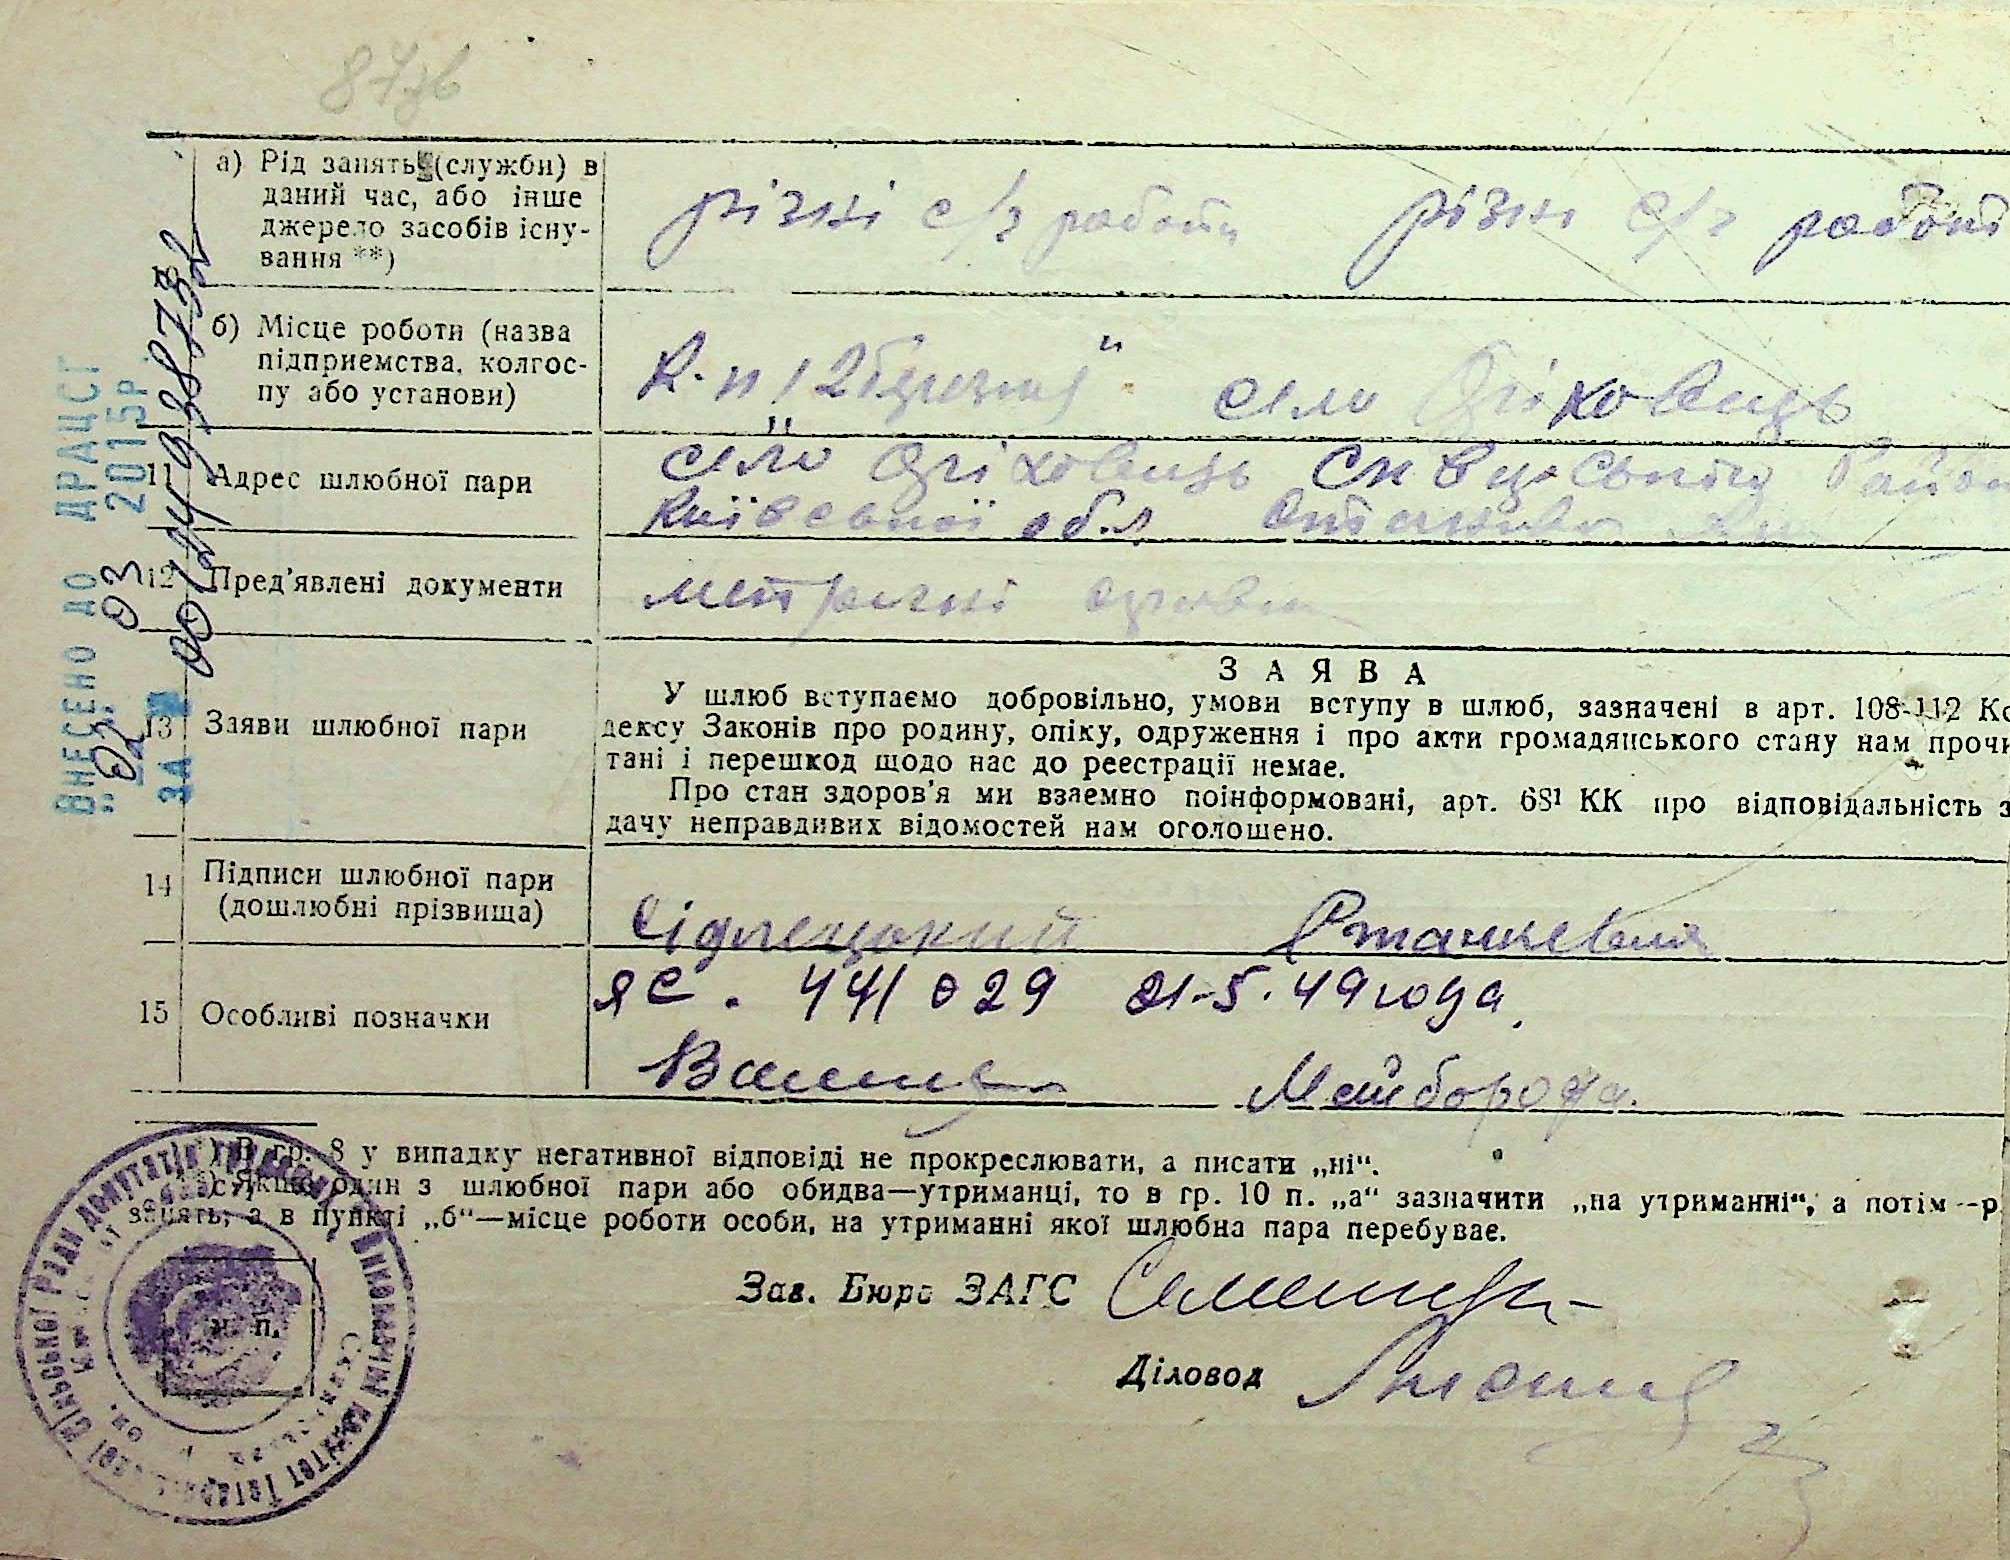 87зв
а) Рід занять (служби) в
даний час, або інше
джерело засобів існу-
вання **)
різні с/г работи різні с/г работи
б) Місце роботи (назва
підприемства, колгос-
пу або установи)
К-п 12 березня" село
11 Адрес шлюбної пари
село района
Київської обл
12 Пред'явлені документи
метричні
13 Заяви шлюбної пари
ЗАЯВА
У шлюб вступаємо добровільно, умови вступу в шлюб, зазначені в арт. 108-112 Ко
дексу Законів про родину, опіку, одруження і про акти громадянського стану нам прочи
тані і перешкод щодо нас до реестрації немае.
Про стан здоров'я ми взаемно поінформовані, арт. 68¹ КК про відповідальність з
дачу неправдивих відомостей нам оголошено.
14 Підписи шлюбної пари
(дошлюбні прізвища)
Сідлецький
15 Особливі позначки
ЯС. 441029 21-5.49 года
Майборода.
*) В гр. 8 у випадку негативної відповіді не прокреслювати, а писати „ні“.
**) Якщо один з шлюбної пари або обидва—утриманці, то в гр. 10 п. „а“ зазначити „на утриманні“, а потім--р
занять, а в пункті „б“—місце роботи особи, на утриманні якої шлюбна пара перебувае.
Зав. Бюро ЗАГС
Діловод
м. п.
ВНЕСЕНО ДО ДРАЦСГ
"02" 03 2015р
ЗА № 00144938732